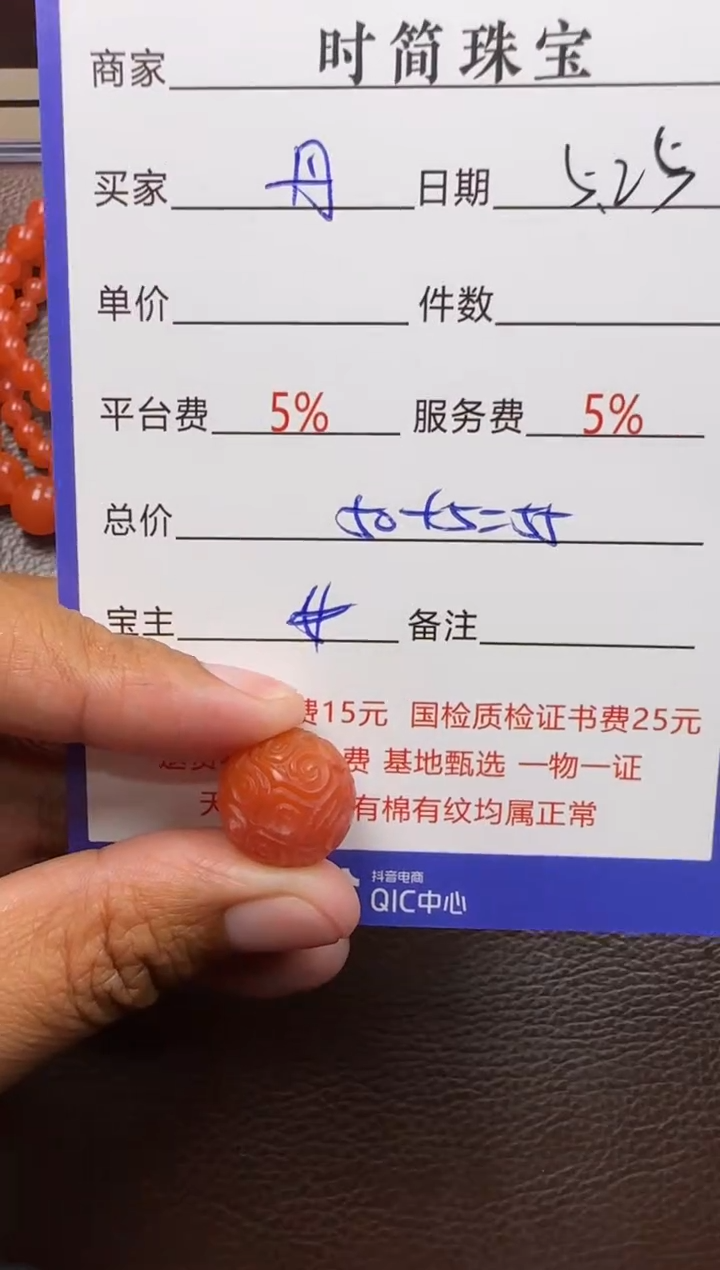 商家 时简珠宝
买家 丹 日期 5.25
单价 件数
平台费 5% 服务费 5%
总价 50+5=55
宝主 备注
费15元 国检质检证书费25元
费 基地甄选 一物一证
天 有棉有纹均属正常
抖音电商
QIC中心